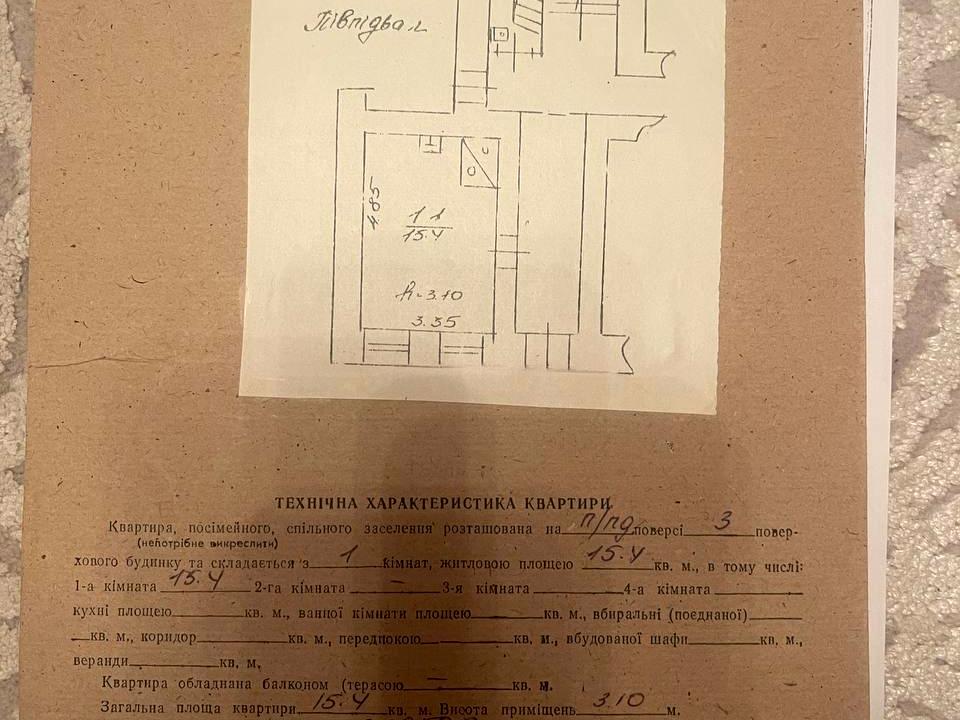 Півпідвал
4.85
1 1
15.4
h-3.10
3.35
ТЕХНІЧНА ХАРАКТЕРИСТИКА КВАРТИРИ
Квартира, посімейного, спільного заселення розташована на п/пд поверсі 3 повер-
(непотрібне викреслити)
хового будинку та складається з 1 кімнат, житловою площею 15.4 кв. м., в тому числі:
1-а кімната 15.4 2-га кімната — 3-я кімната 4-а кімната
кухні площею кв. м., ванної кімнати площею кв. м., вбиральні (поєднаної)
кв. м., коридор кв. м., передпокою кв. м., вбудованої шафи кв. м.,
веранди кв. м.
Квартира обладнана балконом (терасою — кв. м.
Загальна площа квартири 15.4 кв. м. Висота приміщень 3.10 м.